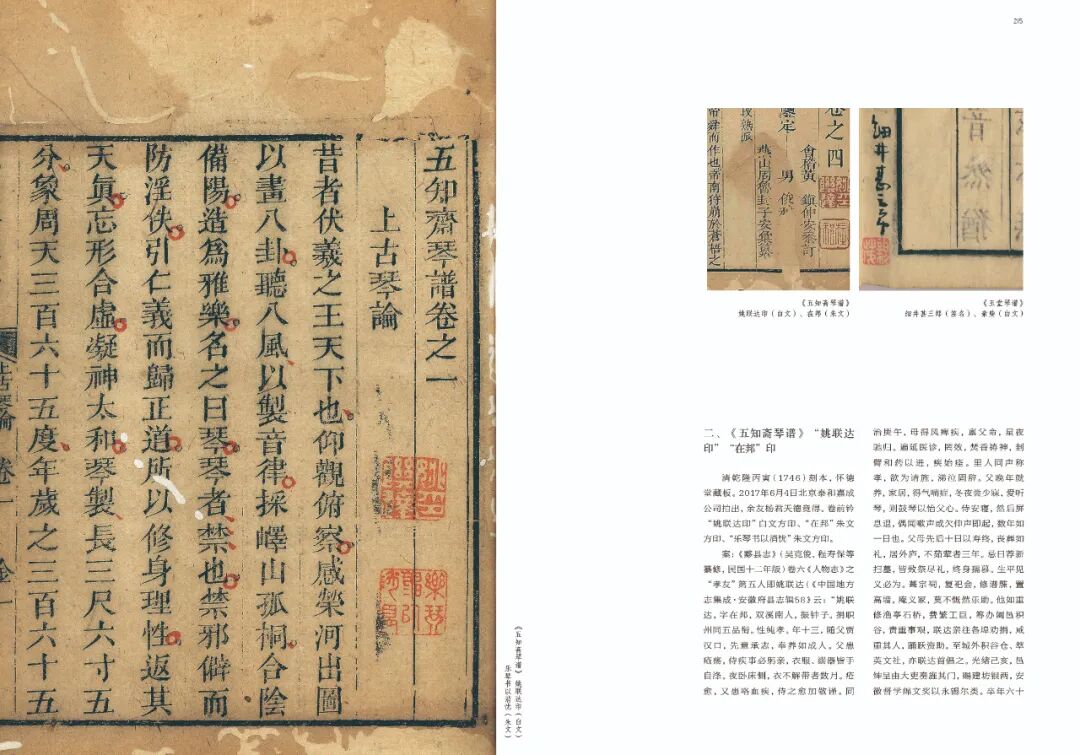 五知齋琴譜卷之一
上古琴論
昔者伏羲之王天下也仰觀俯察感榮河出圖
以畫八卦聽八風以製音律採嶧山孤桐合陰
備陽造爲雅樂名之曰琴琴者禁也禁邪僻而
防淫佚引仁義而歸正道所以修身理性返其
天眞忘形合虛凝神太和琴製長三尺六寸五
分象周天三百六十五度年歲之三百六十五
上古琴論 卷一
《五知斋琴谱》 姚联达印（白文）
乐琴书以消忧（朱文）
卷之四
鑒定
會稽黃 鎮仲安叅訂
男 俊
燕山周魯封子安彙纂
細井甚三郎
音然猶
《五知斋琴谱》
姚联达印（白文）、在邦（朱文）
《玉堂琴谱》
细井甚三郎（签名）、
二、《五知斋琴谱》“姚联达
印”“在邦”印
清乾隆丙寅（1746）刻本，怀德
堂藏板。2017年6月4日北京泰和嘉成
公司拍出，余友杨君天德竞得。卷前钤
“姚联达印”白文方印、“在邦”朱文
方印、“乐琴书以消忧”朱文方印。
案：《黟县志》（吴克俊、程寿保等
纂修，民国十二年版）卷六《人物志》之
“孝友”第五人即姚联达（《中国地方
志集成·安徽府县志辑58》）云：“姚联
达，字在邦，双溪南人，振钟子，捐职
州同五品衔。性纯孝。年十三，随父贾
汉口，先意承志，奉养如成人。父患
疮疡，侍疾事必躬亲，衣服、溺器皆手
自涤，夜卧床侧，衣不解带者数月。疮
愈，又患咯血疾，侍之愈加敬谨。同
治庚午，母得风痹疾，禀父命，星夜
驰归。遍延医诊，罔效，焚香祷神，刲
臂和药以进，疾始痊。里人同声称
孝，欲为请旌，涕泣固辞。父晚年就
养，家居，得气喘症，冬夜尝少寐，爱听
琴，则鼓琴以怡父心。侍安寝，然后屏
息退，偶闻嗽声或欠伸声即起，数年如
一日也。父母先后十日以寿终，丧葬如
礼，居外庐，不茹荤者三年。忌日荐新
扫墓，皆致祭尽礼，终身孺慕。生平见
义必为。葺宗祠，复祀会，修谱牒，置
高墙，庵义冢，莫不慨然乐助。他如重
修渔亭石桥，费繁工巨，筹办阖邑积
谷，责重事艰，联达亲往各埠劝捐，咸
重其人，踊跃资助。至城外积谷仓、萃
英文社，亦联达首倡之。光绪己亥，邑
绅呈由大吏奏旌其门，赐建坊银两，安
徽督学绵文奖以永锡尔类。卒年六十